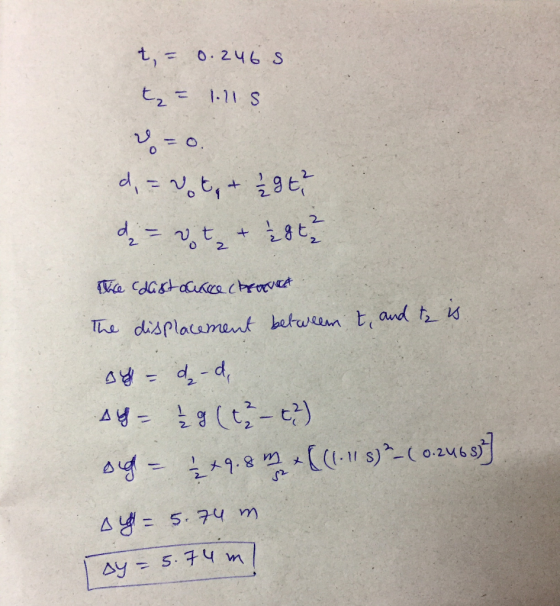 t₁ = 0.246 s
t₂ = 1.11 s
v₀ = 0.
d₁ = v₀t₁ + ½gt₁²
d₂ = v₀t₂ + ½gt₂²
The displacement between t₁ and t₂ is
Δy = d₂-d₁
Δy = ½ g (t₂² - t₁²)
Δy = ½ × 9.8 m/s² × [((1.11 s)² - (0.246 s)²]
Δy = 5.74 m
Δy = 5.74 m